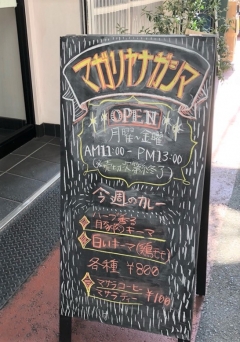 マガリヤナガジマ
OPEN
月曜〜土曜
AM11:00 - PM13:00
今週のカレー
ハーブ香る
豚肉キーマ
白いキーマ(鶏もも)
各種 ¥800
マサラコーヒー
マサラティー ¥100